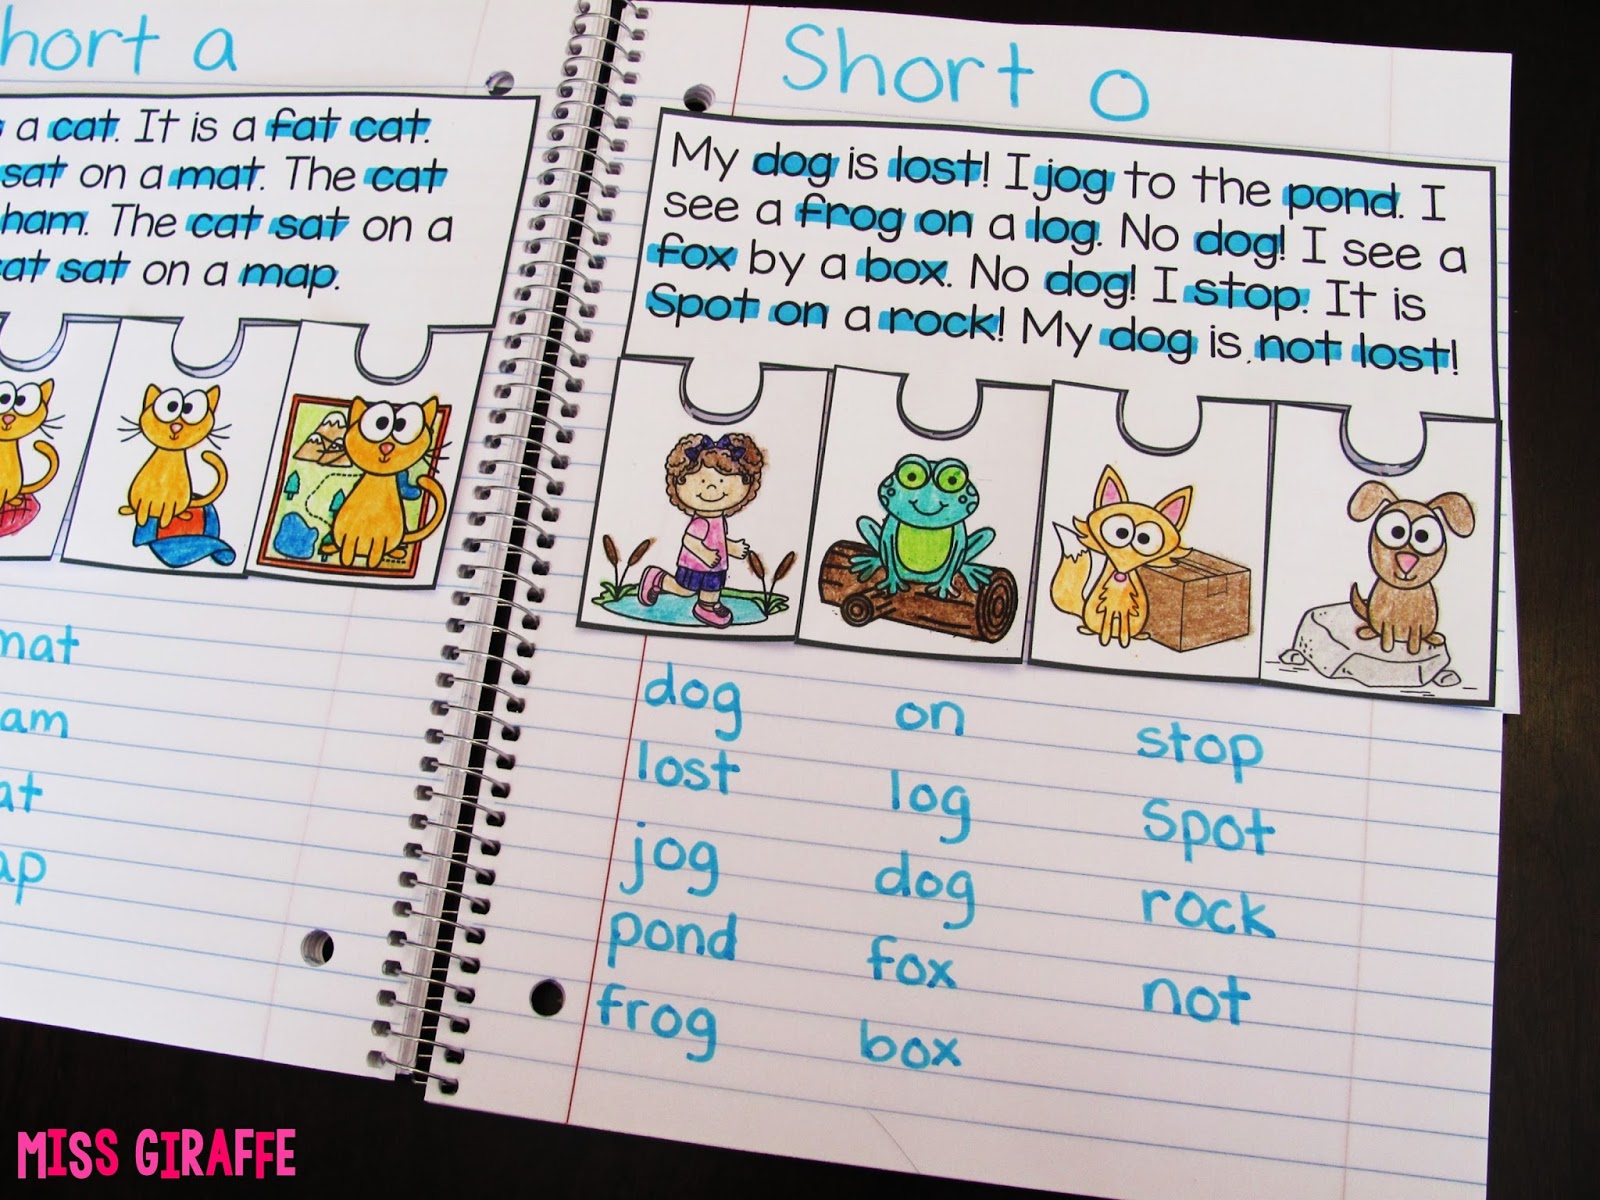 hort a
a cat. It is a fat cat.
sat on a mat. The cat
ham. The cat sat on a
cat sat on a map.
mat
am
at
ap
Short o
My dog is lost! I jog to the pond. I
see a frog on a log. No dog! I see a
fox by a box. No dog! I stop. It is
Spot on a rock! My dog is not lost!
dog on stop
lost log Spot
jog dog rock
pond fox not
frog box
MISS GIRAFFE